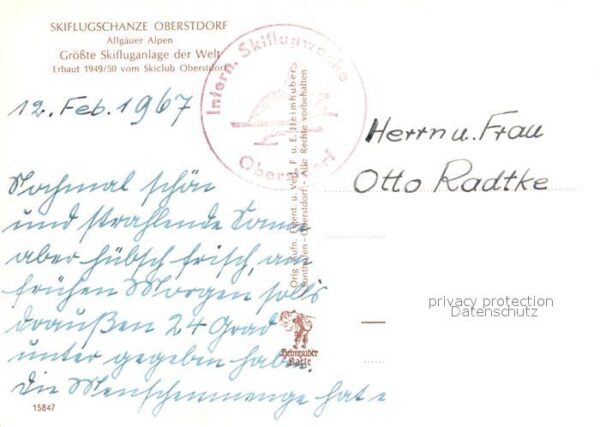 SKIFLUGSCHANZE OBERSTDORF
Allgäuer Alpen
Größte Skifluganlage der Welt
Erbaut 1949/50 vom Skiclub Oberstdorf
Intern. Skiflugwoche
Oberstdorf
12. Feb. 1967
Herrn u. Frau
Otto Radtke
Nochmal schön
und strahlende Sonne
aber hübsch frisch, am
frühen Morgen solls
draußen 24 Grad
unter gegeben haben.
Die Menschenmenge hat
Orig.-Aufn. Eigent. u. Verl. F. u. E. Heimhuber
Sonthofen - Oberstdorf - Alle Rechte vorbehalten
Heimhuber
Karte
privacy protection
Datenschutz
15847